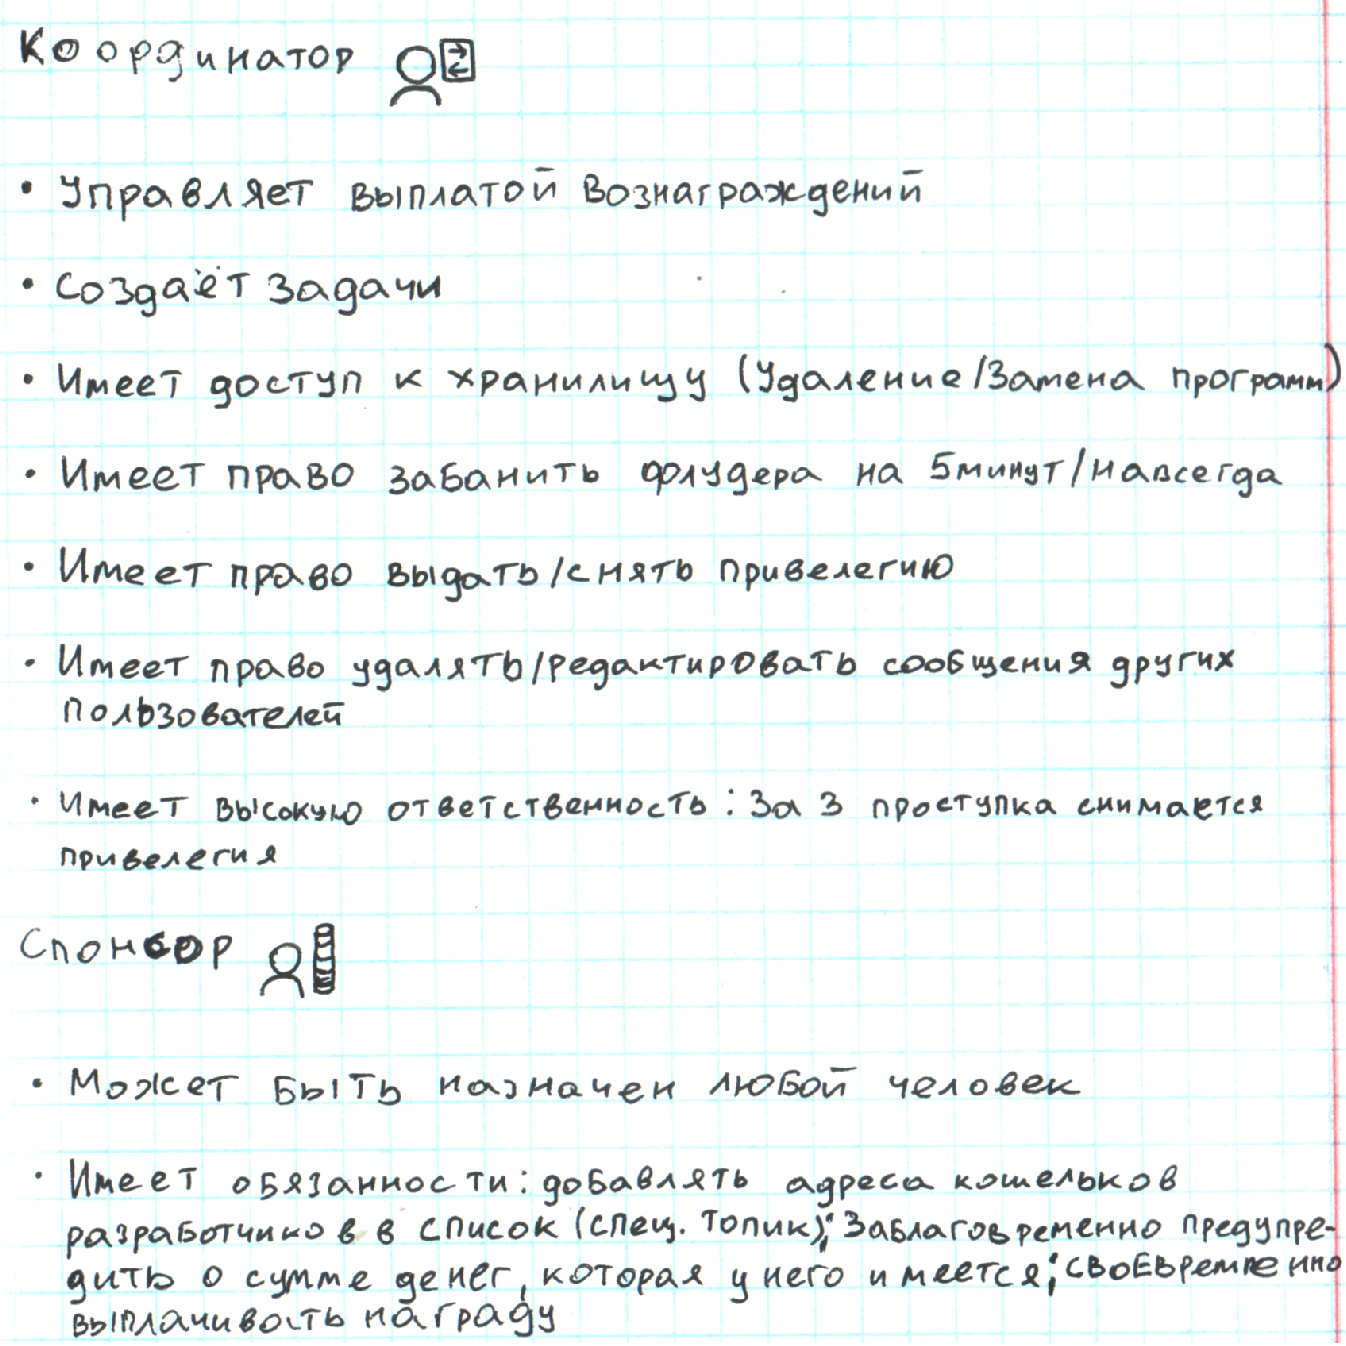 Координатор
• Управляет выплатой вознаграждений
• Создаёт задачи
• Имеет доступ к хранилищу (Удаление/Замена программ)
• Имеет право забанить флудера на 5 минут/навсегда
• Имеет право выдать/снять привелегию
• Имеет право удалять/редактировать сообщения других
пользователей
• Имеет высокую ответственность: За 3 проступка снимается
привелегия
Спонсор
• Может быть назначен любой человек
• Имеет обязанности: добавлять адреса кошельков
разработчиков в список (спец. топик); Заблаговременно предупре-
дить о сумме денег, которая у него имеется; своевременно
выплачивость награду